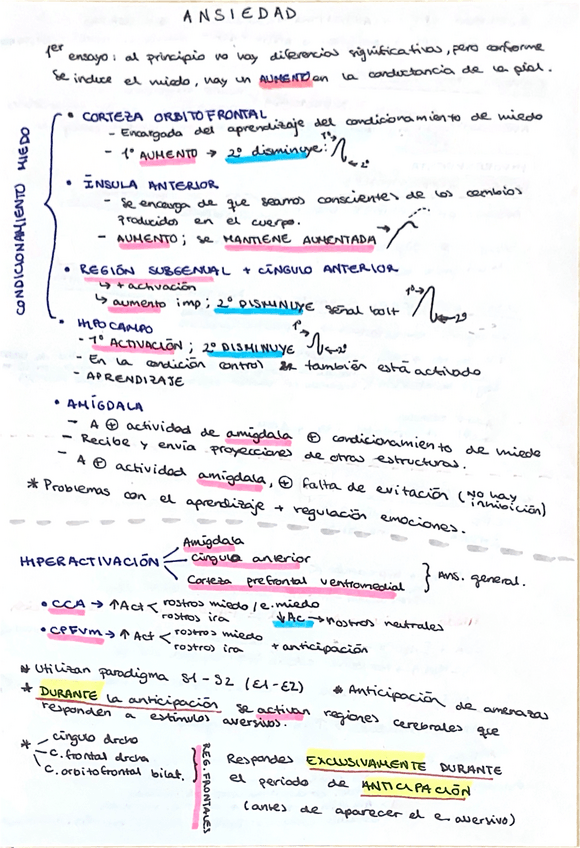 ANSIEDAD
1er ensayo: al principio no hay diferencias significativas, pero conforme
se induce el miedo, hay un AUMENTO en la conductancia de la piel.
CONDICIONAMIENTO MIEDO
• CORTEZA ORBITOFRONTAL
- Encargada del aprendizaje del condicionamiento de miedo
- 1º AUMENTO → 2º disminuye: 1º→ ←2º
• ÍNSULA ANTERIOR
- Se encarga de que seamos conscientes de los cambios
producidos en el cuerpo.
- AUMENTO; se MANTIENE AUMENTADA
• REGIÓN SUBGENUAL + CÍNGULO ANTERIOR
↳ + activación
↳ aumento imp; 2º DISMINUYE señal bolt 1º→ ←2º
• HIPOCAMPO
- 1º ACTIVACIÓN; 2º DISMINUYE 1º→ ←2º
- En la condición control también está activado
- APRENDIZAJE
• AMÍGDALA
- A ⊕ actividad de amígdala ⊕ condicionamiento de miedo
- Recibe y envía proyecciones de otras estructuras.
- A ⊕ actividad amígdala, ⊕ falta de evitación (NO hay inhibición)
* Problemas con el aprendizaje + regulación emociones.
HIPERACTIVACIÓN
Amígdala
Cíngulo anterior
Corteza prefrontal ventromedial
} Ans. general.
• CCA → ↑Act < rostros miedo / e. miedo
rostros ira ↓Ac → rostros neutrales
• CPFVm → ↑Act < rostros miedo
rostros ira + anticipación
* Utilizan paradigma S1-S2 (E1-E2) * Anticipación de amenazas
* DURANTE la anticipación se activan regiones cerebrales que
responden a estímulos aversivos.
* cíngulo drcho
C. frontal drcha
C. orbitofrontal bilat.
REG. FRONTALES
Respondes EXCLUSIVAMENTE DURANTE
el periodo de ANTICIPACIÓN
(antes de aparecer el e. aversivo)